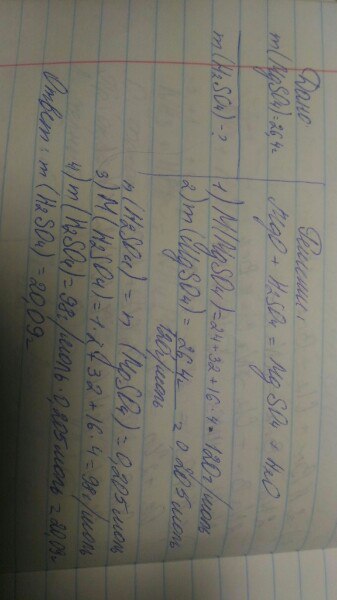 Дано
m(MgSO4)=26,4г
m(H2SO4)-?
Решение:
MgO + H2SO4 = MgSO4 + H2O
1) M(MgSO4)=24+32+16·4=120г/моль
2) m(MgSO4)=26,4г/120г/моль=0,205моль
n(H2SO4)=n(MgSO4)=0,205моль
3) M(H2SO4)=1·2+32+16·4=98г/моль
4) m(H2SO4)=98г/моль·0,205моль=20,09г
Ответ: m(H2SO4)=20,09г